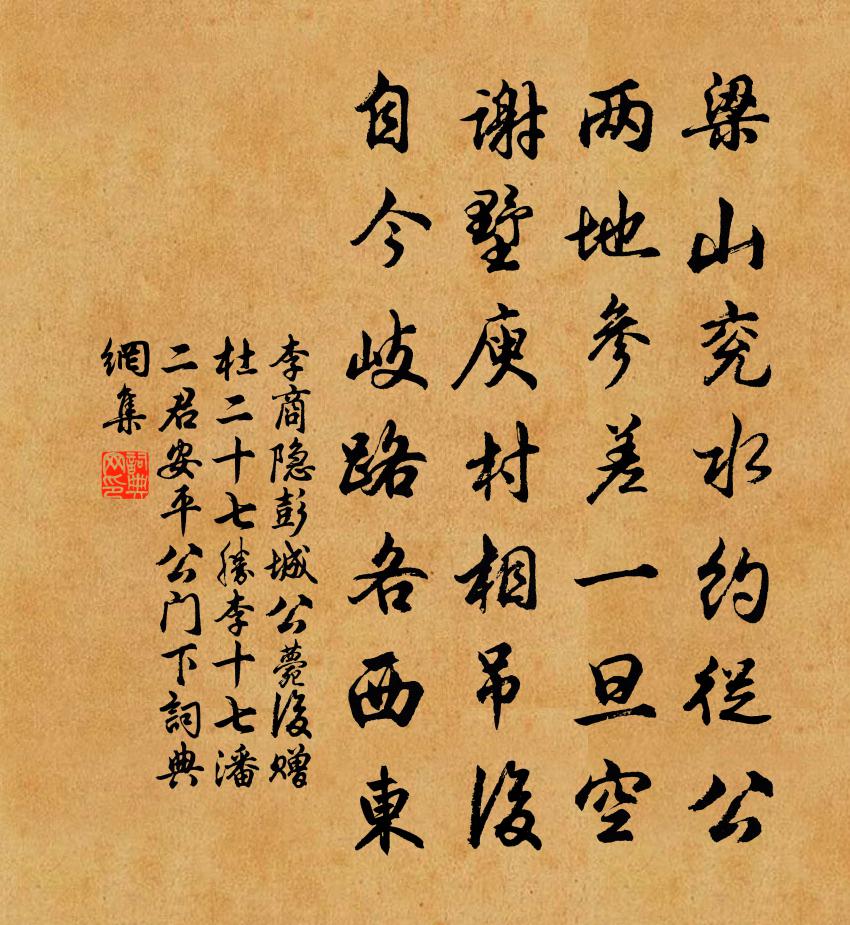 梁山兖水约從公
两地參差一旦空
謝墅庾村相吊後
自今岐路各西東
李商隐彭城公薨後赠
杜二十七勝李十七潘
二君安平公门下詞典
網集
詞典網印